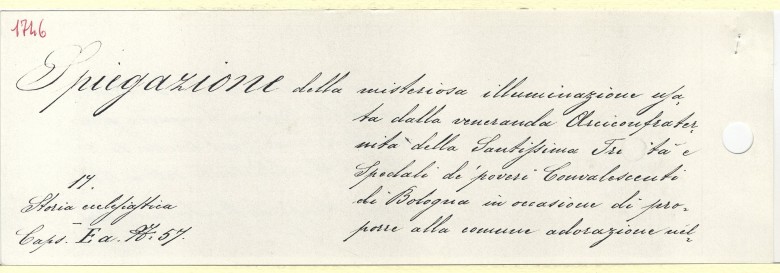 1746
Spiegazione della misteriosa illuminazione usa-
ta dalla veneranda Arciconfrater-
nità della Santissima Tre 'tà e
Spedali de' poveri Convalescenti
di Bologna in occasione di pro-
porre alla comune adorazione nel-
17.
Storia ecclesiastica
Caps. Ea. N.: 57.